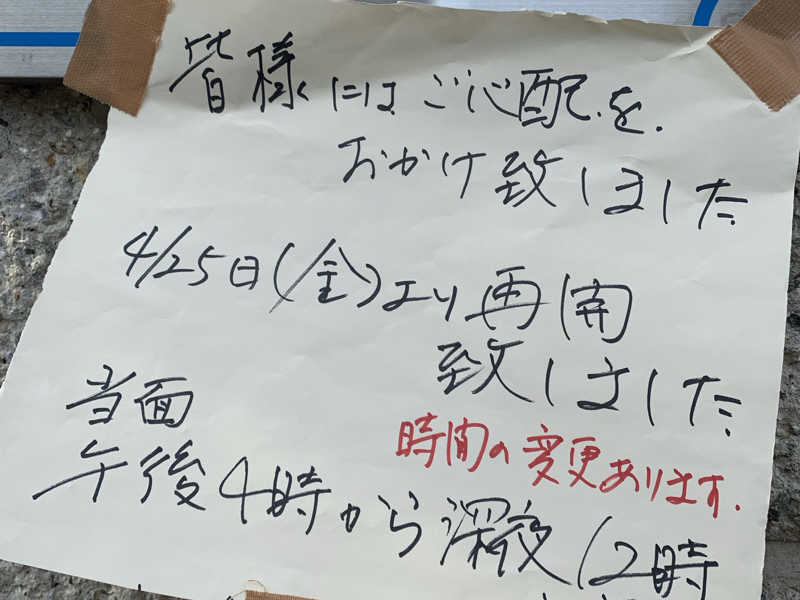 皆様にはご心配を.
おかけ致しました
4/25日(金)より再開
致しました
当面
時間の変更あります.
午後4時から深夜12時